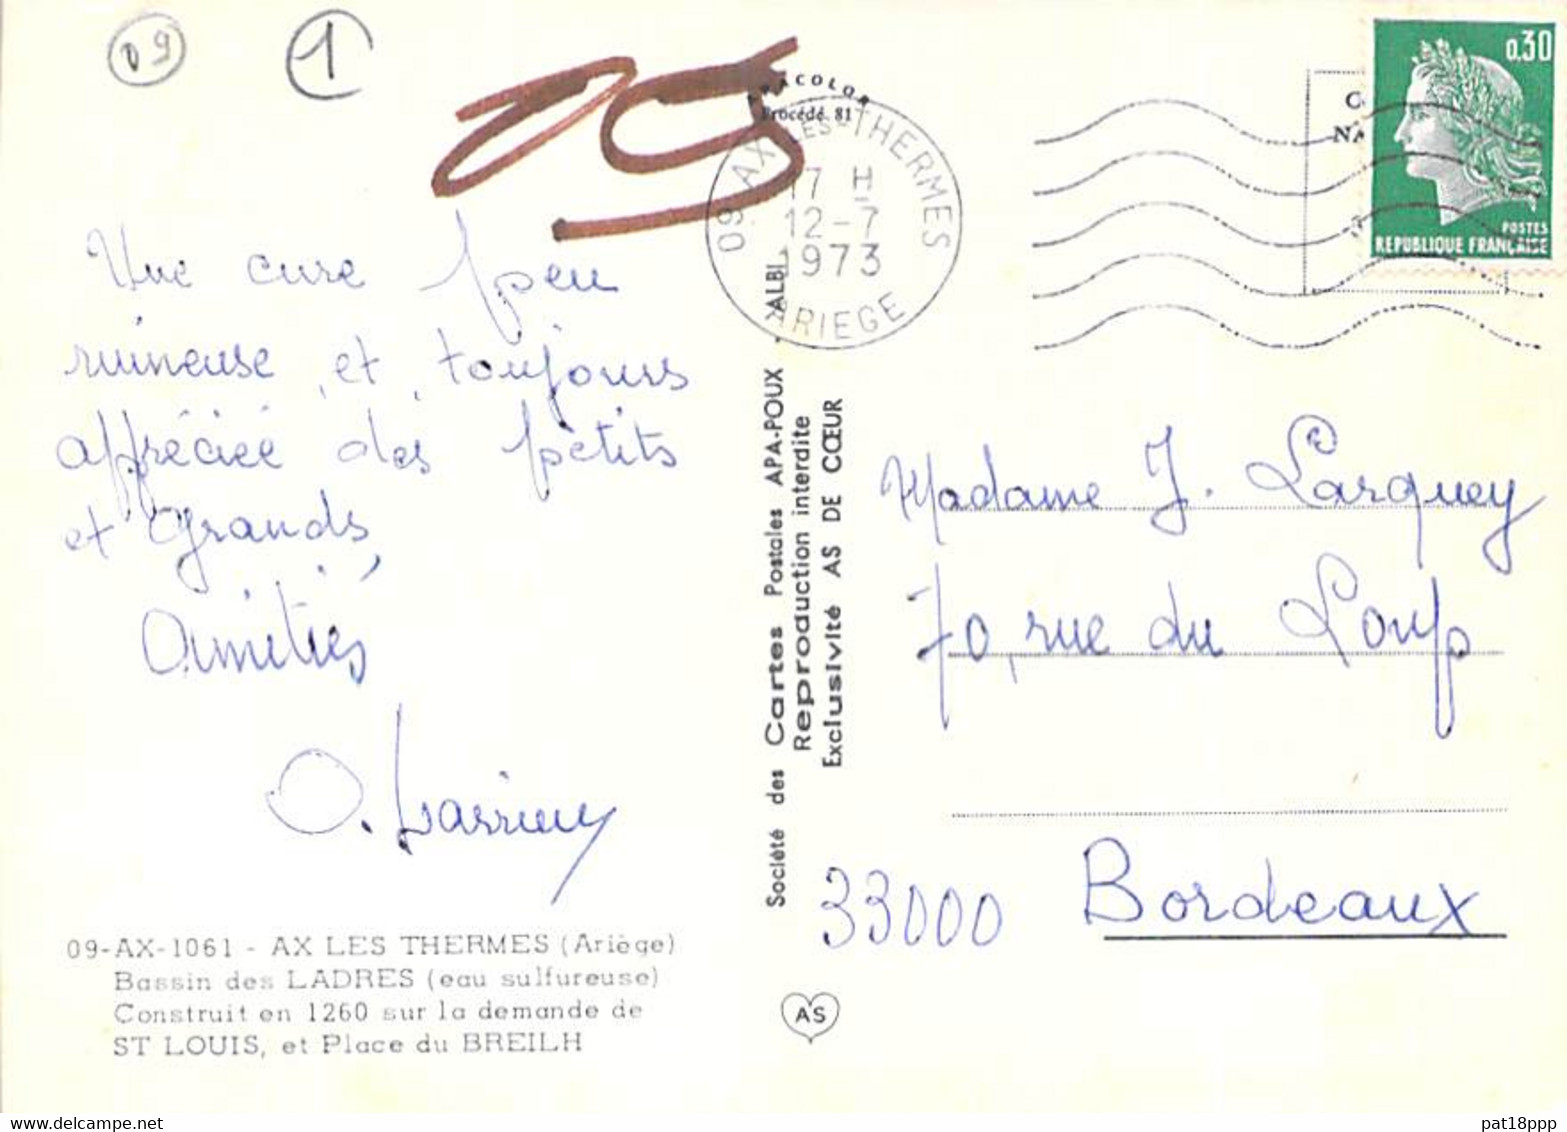 09
1
APACOLOR
Procédé 81
09 AX-LES-THERMES
17 H
12-7
1973
ARIEGE
0,30
POSTES
REPUBLIQUE FRANÇAISE
Une cure peu
ruineuse et toujours
appréciée des petits
et Grands,
Amitiés
09-AX-1061 - AX LES THERMES (Ariège)
Bassin des LADRES (eau sulfureuse)
Construit en 1260 sur la demande de
ST LOUIS, et Place du BREILH
Société des Cartes Postales APA-POUX - ALBI
Reproduction interdite
Exclusivité AS DE CŒUR
AS
Madame J. Larquey
70, rue du Loup
33000 Bordeaux
delcampe.net
pat18ppp